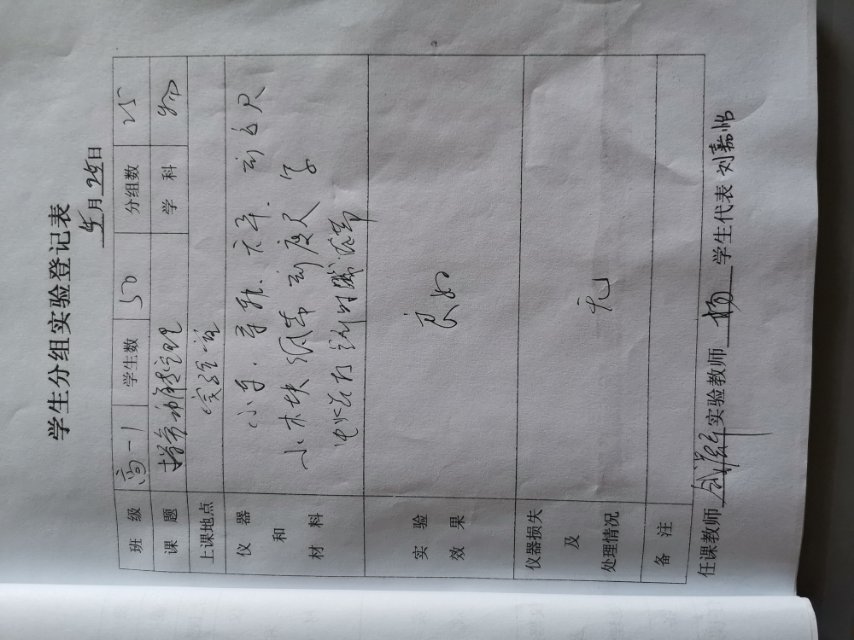 学生分组实验登记表
5月25日
班级 高一1 学生数 50 分组数 25
课题 探究动能定理 学科 物
上课地点 实验室
仪器和材料 小车、导轨、天平、刻度尺
小木块 纸带 刻度尺 等
电火花打点计时器
实验效果 良好
仪器损失及处理情况 无
备注
任课教师 实验教师 杨 学生代表 刘嘉怡